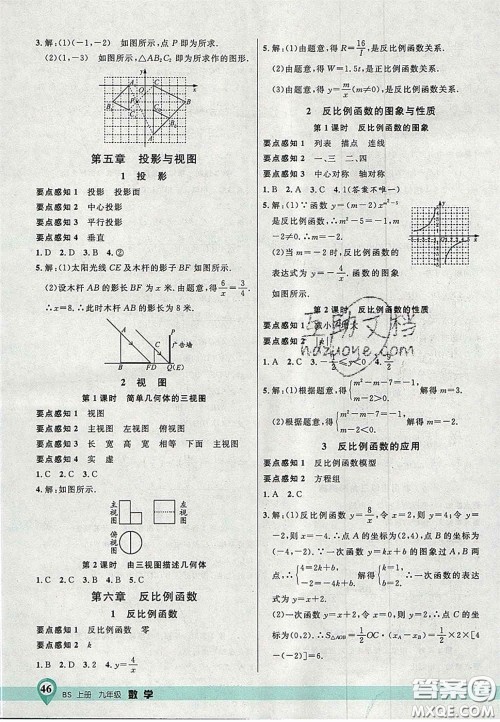 3.解:(1)(-1,-2) 如图所示,点P即为所求.
(2)(1,-3) 如图所示,△AB₂C₂即为所求作的图形.
第五章 投影与视图
1 投影
要点感知1 投影 投影面
要点感知2 中心投影
要点感知3 平行投影
要点感知4 垂直
1.D 2.D 3.B 4.②
5.解:(1)太阳光线CE及木杆的影子BF如图所示.
(2)设木杆AB的影长BF为x米.由题意,得6/x=3/4.
∴x=8.故木杆AB的影长为8米.
A C P
广告墙
B FD Q(E)
2 视图
第1课时 简单几何体的三视图
要点感知1 视图
要点感知2 主视图 左视图 俯视图
要点感知3 长 宽 高 宽 相等 下面 主视图
要点感知4 实 虚
1.C 2.C 3.C
4.解:如图所示.
主视图 左视图
俯视图
第2课时 由三视图描述几何体
1.C 2.C 3.B 4.B
第六章 反比例函数
1 反比例函数
要点感知1 反比例函数 零
要点感知2 k
1.B 2.B 3.A
5.解:(1)由题意,得R=16/I,是反比例函数关系.
(2)由题意,得W=1.5t,是正比例函数关系.
(3)由题意,得y=m/x(m≠0),是反比例函数关系.
2 反比例函数的图象与性质
第1课时 反比例函数的图象
要点感知1 列表 描点 连线
要点感知2 一、三 二、四
要点感知3 中心对称 轴对称
1.B 2.A 3.C 4.1(答案不唯一)
5.解:(1)∵函数y=(m-1)x^{m²-m-7}
是反比例函数,∴m²-5=-1,
解得m=±2.∵图象在第二、四象
限,∴m-1<0.∴m=-2.
(2)当m=-2时,反比例函数的
表达式为y=-4/x.函数的图象
如图所示.
第2课时 反比例函数的性质
要点感知1 减小
要点感知2 |k|
1.B 2.C 3.A
5.解:(1)根据题意,得{m²-m-7=-1, m-2<0. 解得m=-2.
(2)根据题意,得{m²-m-7=-1, m-2>0. 解得m=3.
3 反比例函数的应用
要点感知1 反比例函数模型
要点感知2 方程组
1.C 2.B 3.C
4.解:(1)反比例函数y=8/x,令x=2,则y=4;令
y=-2,则x=-4.∴点A的坐标为(2,4),点B的坐标为
(-4,-2).∵一次函数y=kx+b的图象过A,B两
点,∴{4=2k+b, -2=-4k+b. 解得{k=1, b=2.
∴一次函数的表达式为y=x+2.
(2)∵一次函数y=x+2与y轴交于点C,∴点C的坐
标为(0,2).∴S△AOB=1/2OC·(xA-xB)=1/2×2×[2-
(-4)]=6.
46 BS 上册 九年级 数学
互助文档
hzduoye.com
答案圈
MXQE.COM